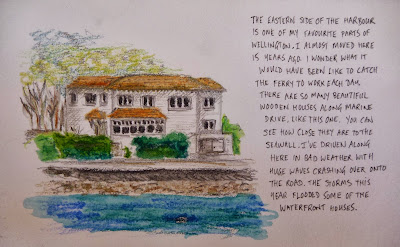 THE EASTERN SIDE OF THE HARBOUR
IS ONE OF MY FAVOURITE PARTS OF
WELLINGTON. I ALMOST MOVED HERE
15 YEARS AGO. I WONDER WHAT IT
WOULD HAVE BEEN LIKE TO CATCH
THE FERRY TO WORK EACH DAY.
THERE ARE SO MANY BEAUTIFUL
WOODEN HOUSES ALONG MARINE
DRIVE, LIKE THIS ONE. YOU CAN
SEE HOW CLOSE THEY ARE TO THE
SEAWALL. I'VE DRIVEN ALONG
HERE IN BAD WEATHER WITH
HUGE WAVES CRASHING OVER ONTO
THE ROAD. THE STORMS THIS
YEAR FLOODED SOME OF THE
WATERFRONT HOUSES.